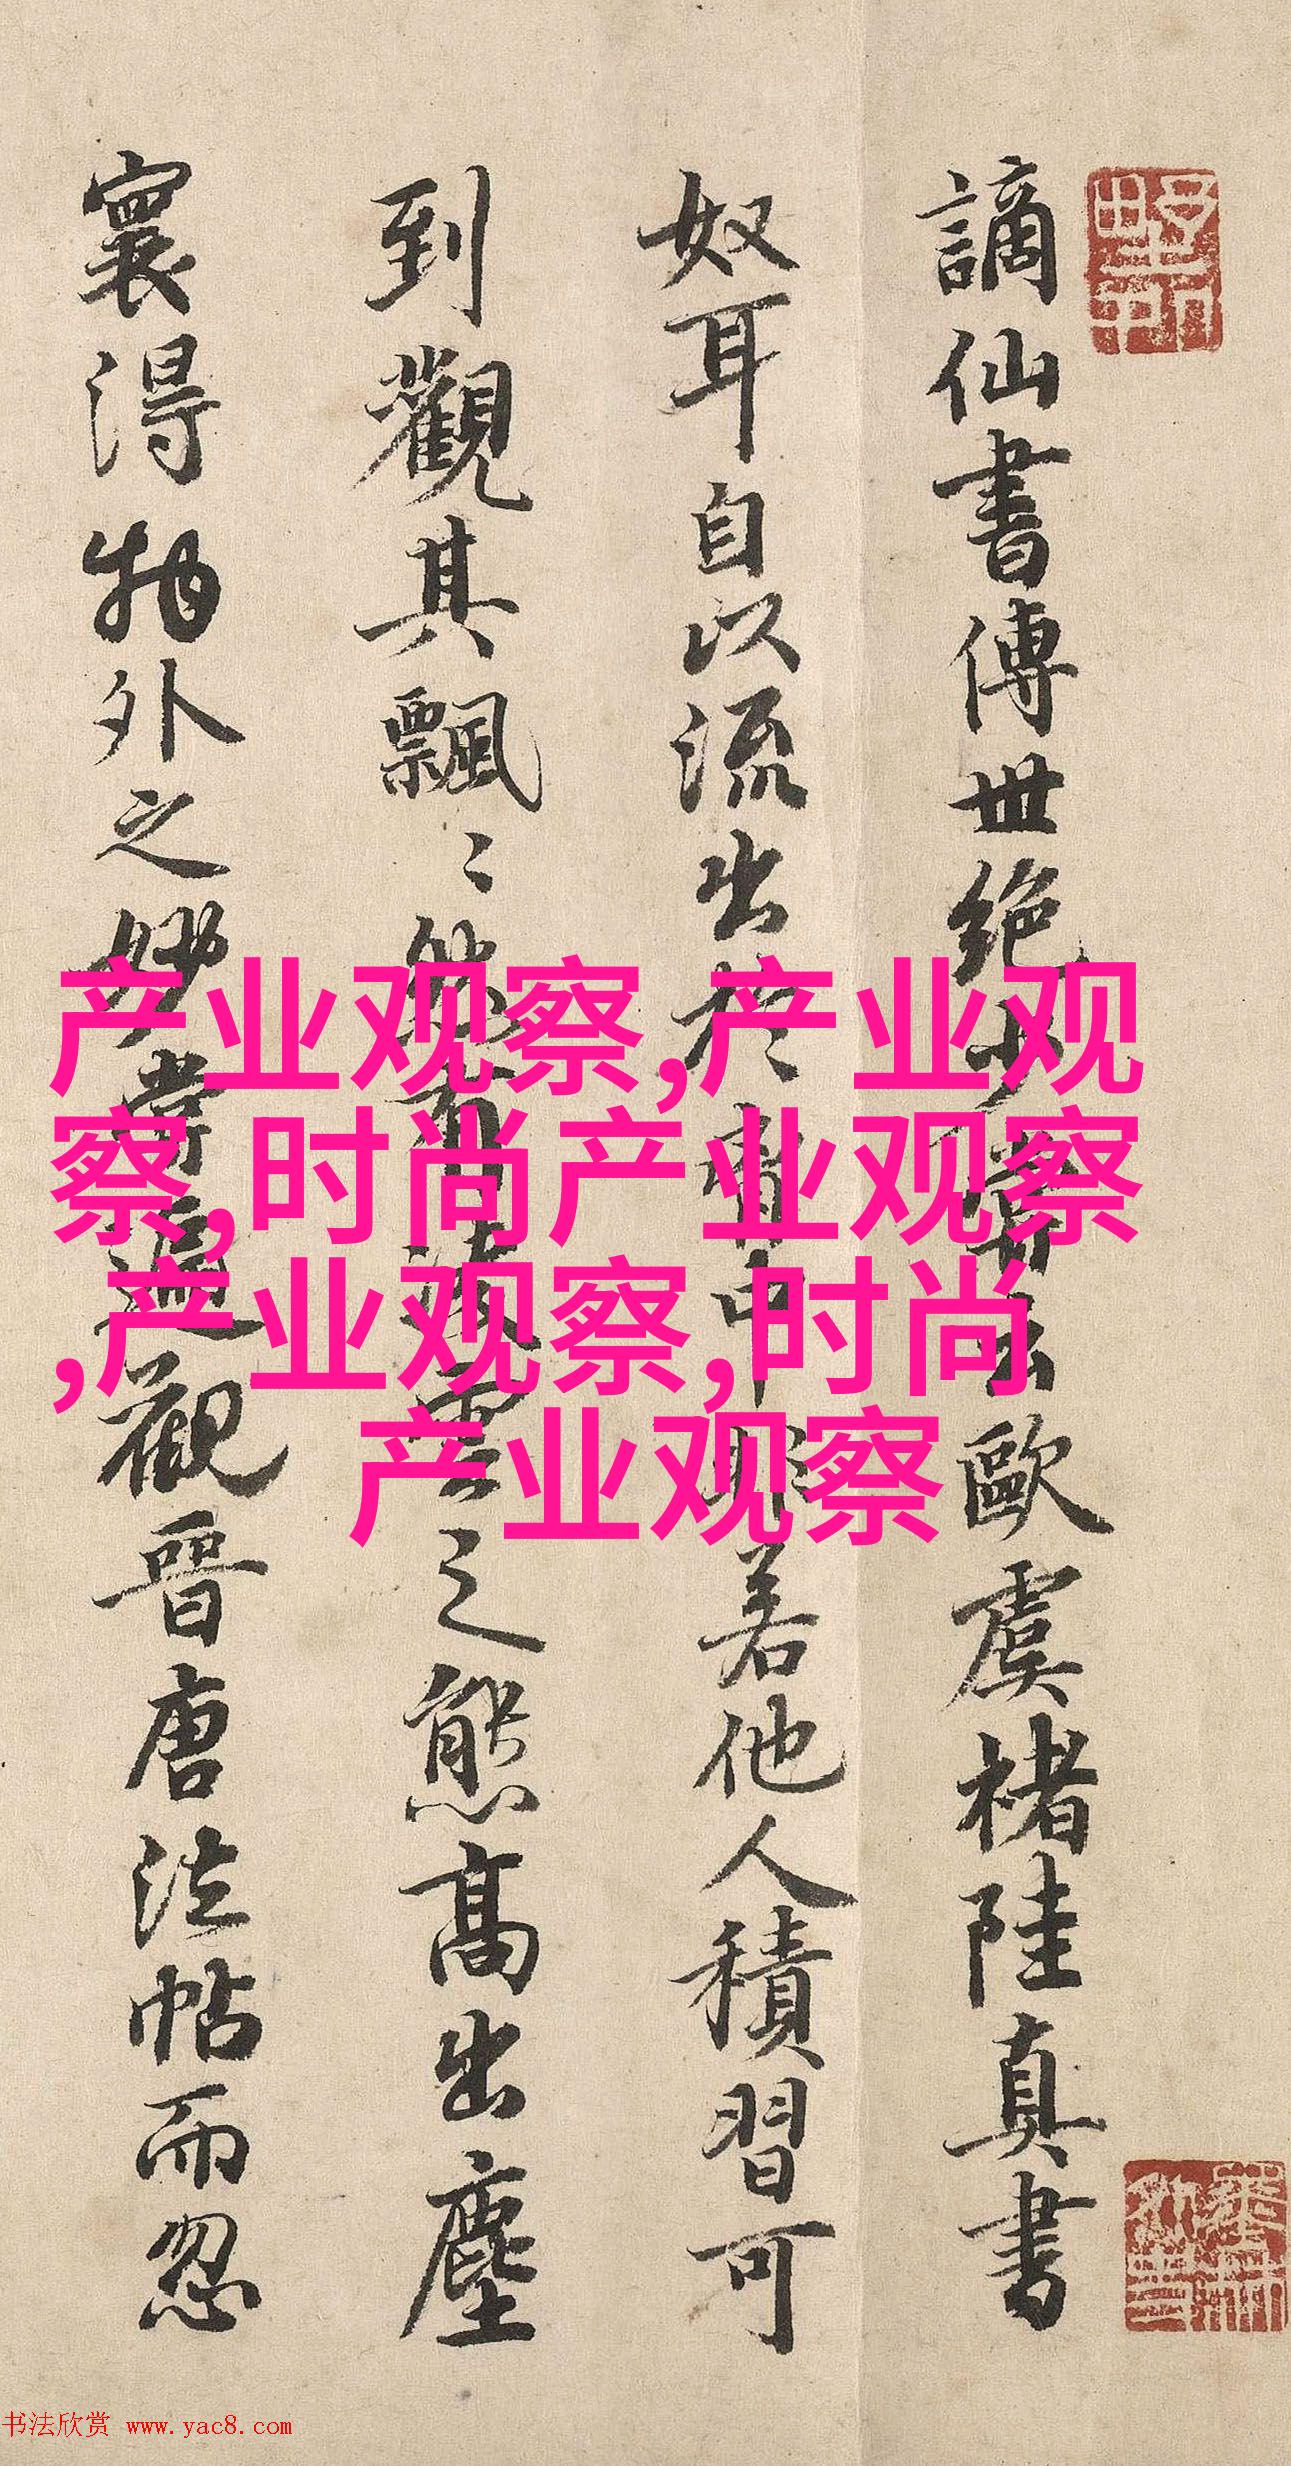 謫仙書傳世絕少嘗云歐虞褚陸真書
奴耳自以流出於胷中非若他人積習可
到觀其飄〻然有凌雲之態高出塵
寰得物外之妙嘗遍觀晉唐法帖而忽
产业观察,产业观
察,时尚产业观察
,产业观察,时尚
产业观察
书法欣赏 www.yac8.com